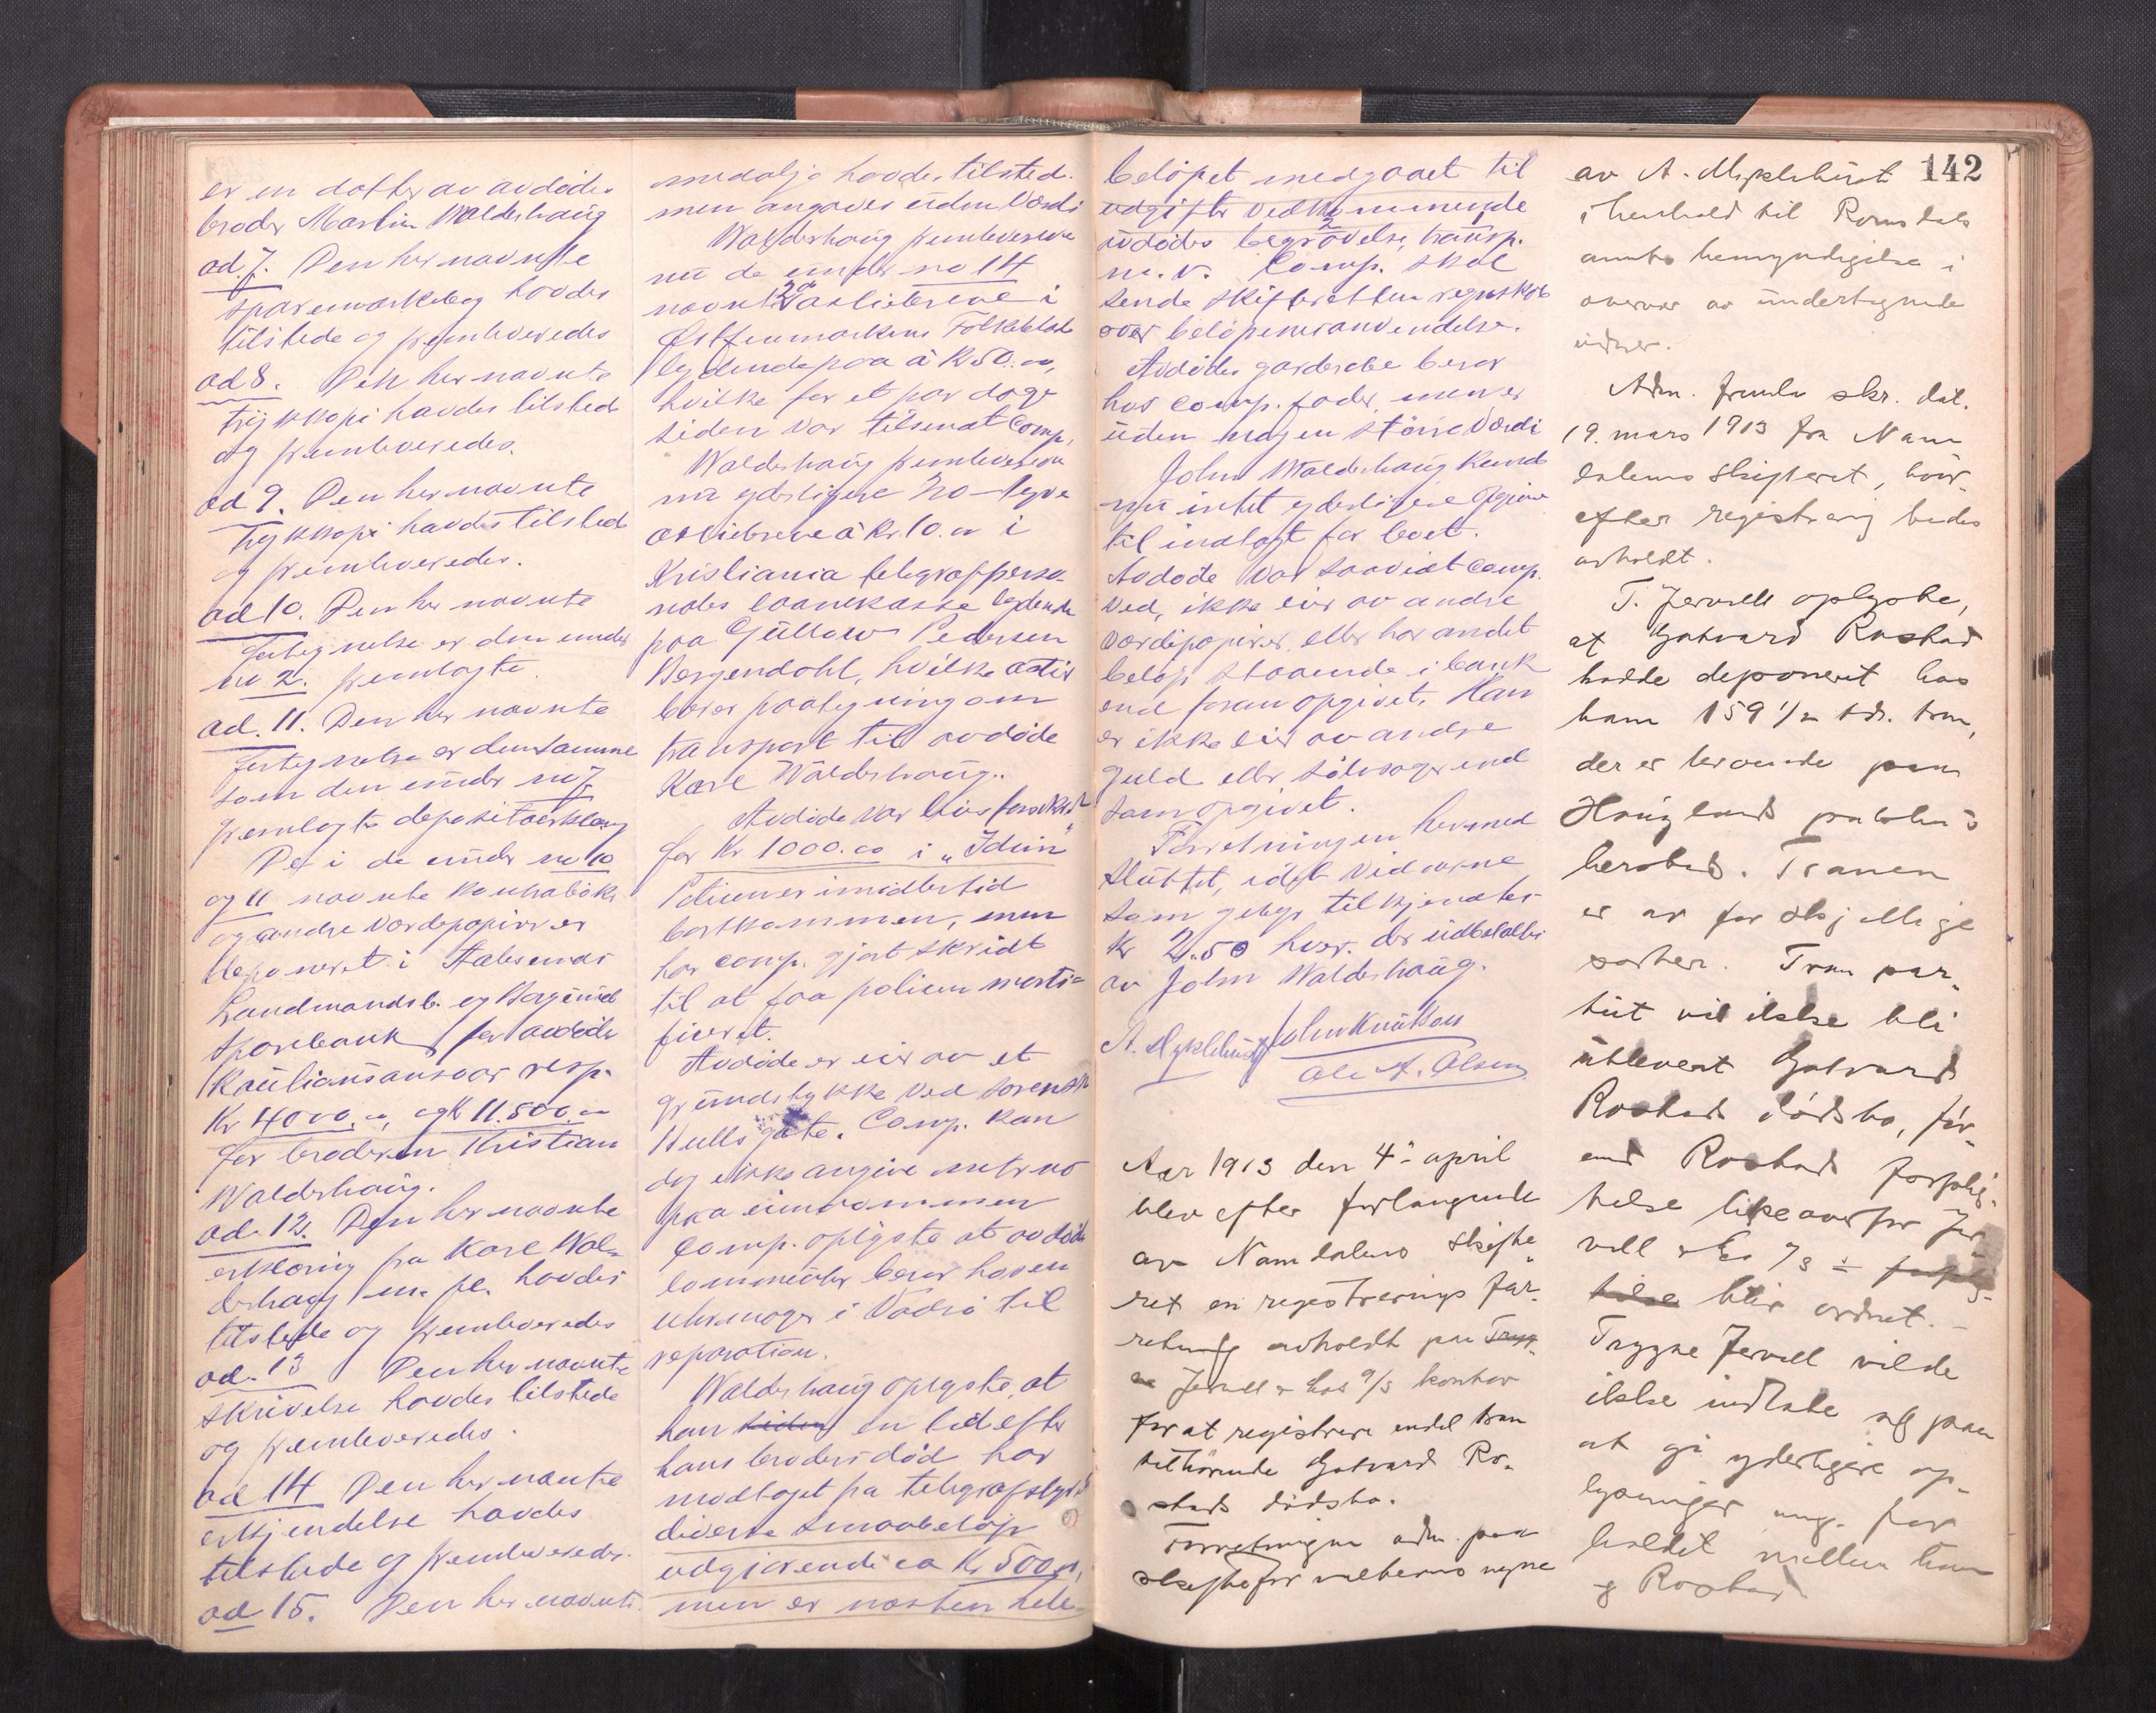 er en datter av avdødes
broder Martin Walderhaug
ad. 7. Den her nævnte
sparemærkebog havdes
tilstede og fremleveredes
ad 8. Den her nævnte
trykkopi havdes tilstede
og fremleveredes.
ad 9. Den her nævnte
Trykkopi havdes tilstede
og fremleveredes.
ad 10. Den her nævnte
fortegnelse er den under
no 2. fremlagte.
ad. 11. Den her nævnte
fortegnelse er den samme
som den under no 7
fremlagte
De i de under no 10
og 11 nævnte kontrabøker
og andre værdepapirer er
deponeret i Aalesunds
Landmandsb. og Borgund
Sparebank for avdøde
Kautionsansvar resp.
Kr 4000.00, og Kr 11.500.00
for broderen Kristian
Walderhaug.
ad. 12. Den her nævnte
erklæring fra Karl Wal-
derhaug m. fl. havdes
tilstede og fremleveredes
ad. 13 Den her nævnte
skrivelse havdes tilstede
og fremleveredes.
ad 14 Den her nævnte
erkjendelse havdes
tilstede og fremleveredes.
ad 15. Den her nævnte
medalje havdes tilstede.
men angaves uden værdi
Walderhaug fremleverede
nu de under no 14
nævnte 2 aktiebreve i
Østfinmarkens Folkeblad
lydende paa à Kr 50.00,
hvilke for et par dage
siden var tilsendt Comp.
Walderhaug fremleverede
nu yderligere 20 – tyve
aktiebreve à Kr. 10.00 i
Kristiania telegrafperso-
nales laanekasse lydende
paa Gustav Pedersen
Bergendahl, hvilke aktier
bærer paategning om
transport til avdøde
Karl Walderhaug.
Avdøde var livsforsikret
for Kr 1000.00 i „Idun"
Policen er imidlertid
bortkommen, men
har comp. gjort skridt
til at faa policen morti-
ficeret.
Avdøde er eier av et
grundstykke ved Sørensk
Hulls gate. Comp. kan
dog ikke angive matr. no
paa eiendommen
Comp. oplyste at avdødes
lommeuhr beror hos en
uhrmager i Vadsø til
reparation.
Walderhaug oplyste, at
han siden en tid efter
hans broders død har
modtaget fra telegrafstyret
diverse smaabeløp
udgjørende ca Kr 500.00,
men er næsten hele
beløpet medgaaet til
udgifter vedkommende
avdødes begravelse, transp.
m. v. Comp. skal
sende skifteretten regnskab
over beløpenes anvendelse.
Avdødes garderobe beror
hos comp. fader, men er
uden nogen større værdi
John Walderhaug kunde
nu intet yderligere opgive
til indtægt for boet.
Avdøde var saavidt comp.
ved, ikke eier av andre
værdipapirer, eller har andet
beløp staaende i bank
end foran opgivet. Han
er ikke eier av andre
guld eller sølvsager end
som opgivet.
Forretningen hermed
sluttet, idet vidnerne
som gebyr tilkjendtes
Kr 2.50 hver. der udbetaltes
av John Walderhaug.
A. Myklebust John Knutsen
Ole A. Olsen
Aar 1913 den 4de april
blev efter forlangende
av Namdalens skifte-
ret en registrerings for-
retning avholdt paa Tryg-
ve Jervell & Cos A/S kontor
for at registrere endel tran
tilhørende Gotvard Ro-
stads dødsbo.
Forretningen adm. paa
skifteforvalterens vegne
142
av A. Myklebust
i henhold til Romsdals
amts bemyndigelse i
overvær av undertegnede
vidner.
Adm. fremla skr. dat.
19. mars 1913 fra Nam-
dalens skifteret, hvor-
efter registrering bedes
avholdt.
T. Jervell oplyste,
at Gotvard Rostad
hadde deponert hos
ham 159 1/2 tdr. tran,
der er beroende paa
Hauglands pakhus
hersteds. Tranen
er av forskjellige
sorter. Tran par-
tiet vil ikke bli
utlevert Gotvard
Rostads dødsbo, før-
end Rostads forplig-
telse likeoverfor Jer-
vell & Co A/S
blir ordnet. –
Trygve Jervell vilde
ikke indlate sig paa
at gi yderligere op-
lysninger ang. for
holdet mellem ham
og Rostad